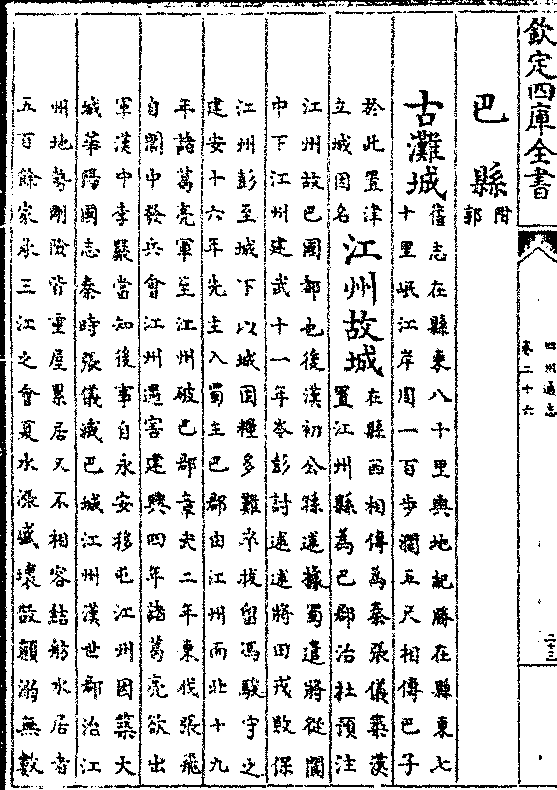 欽定四庫全書
四川通志
卷二十六
巴縣
附
郭
古灘城
舊志在縣東八十里輿地記勝在縣東七
十里岷江岸周一百步濶五尺相傳巴子
於此置津
立城因名
江州故城
在縣西相傳為秦張儀築漢
置江州縣為巴郡治杜預注
江州故巴國都也後漢初公孫述據蜀遣將從閬
中下江州建武十一年岑彭討述述將田戎敗保
江州彭至城下以城固糧多難卒拔留馮駿守之
建安十六年先主入蜀主巴郡由江州而北十九
年諸葛亮軍至江州破巴郡章武二年東伐張飛
自閬中發兵會江州遇害建興四年諸葛亮欲出
軍漢中李嚴當知後事自永安移屯江州因築大
城華陽國志秦時張儀城巴城江州漢世郡治江
州地勢剛險皆重屋累居又不相容結舫水居者
五百餘家承三江之會夏水漲盛壞故顛溺無數